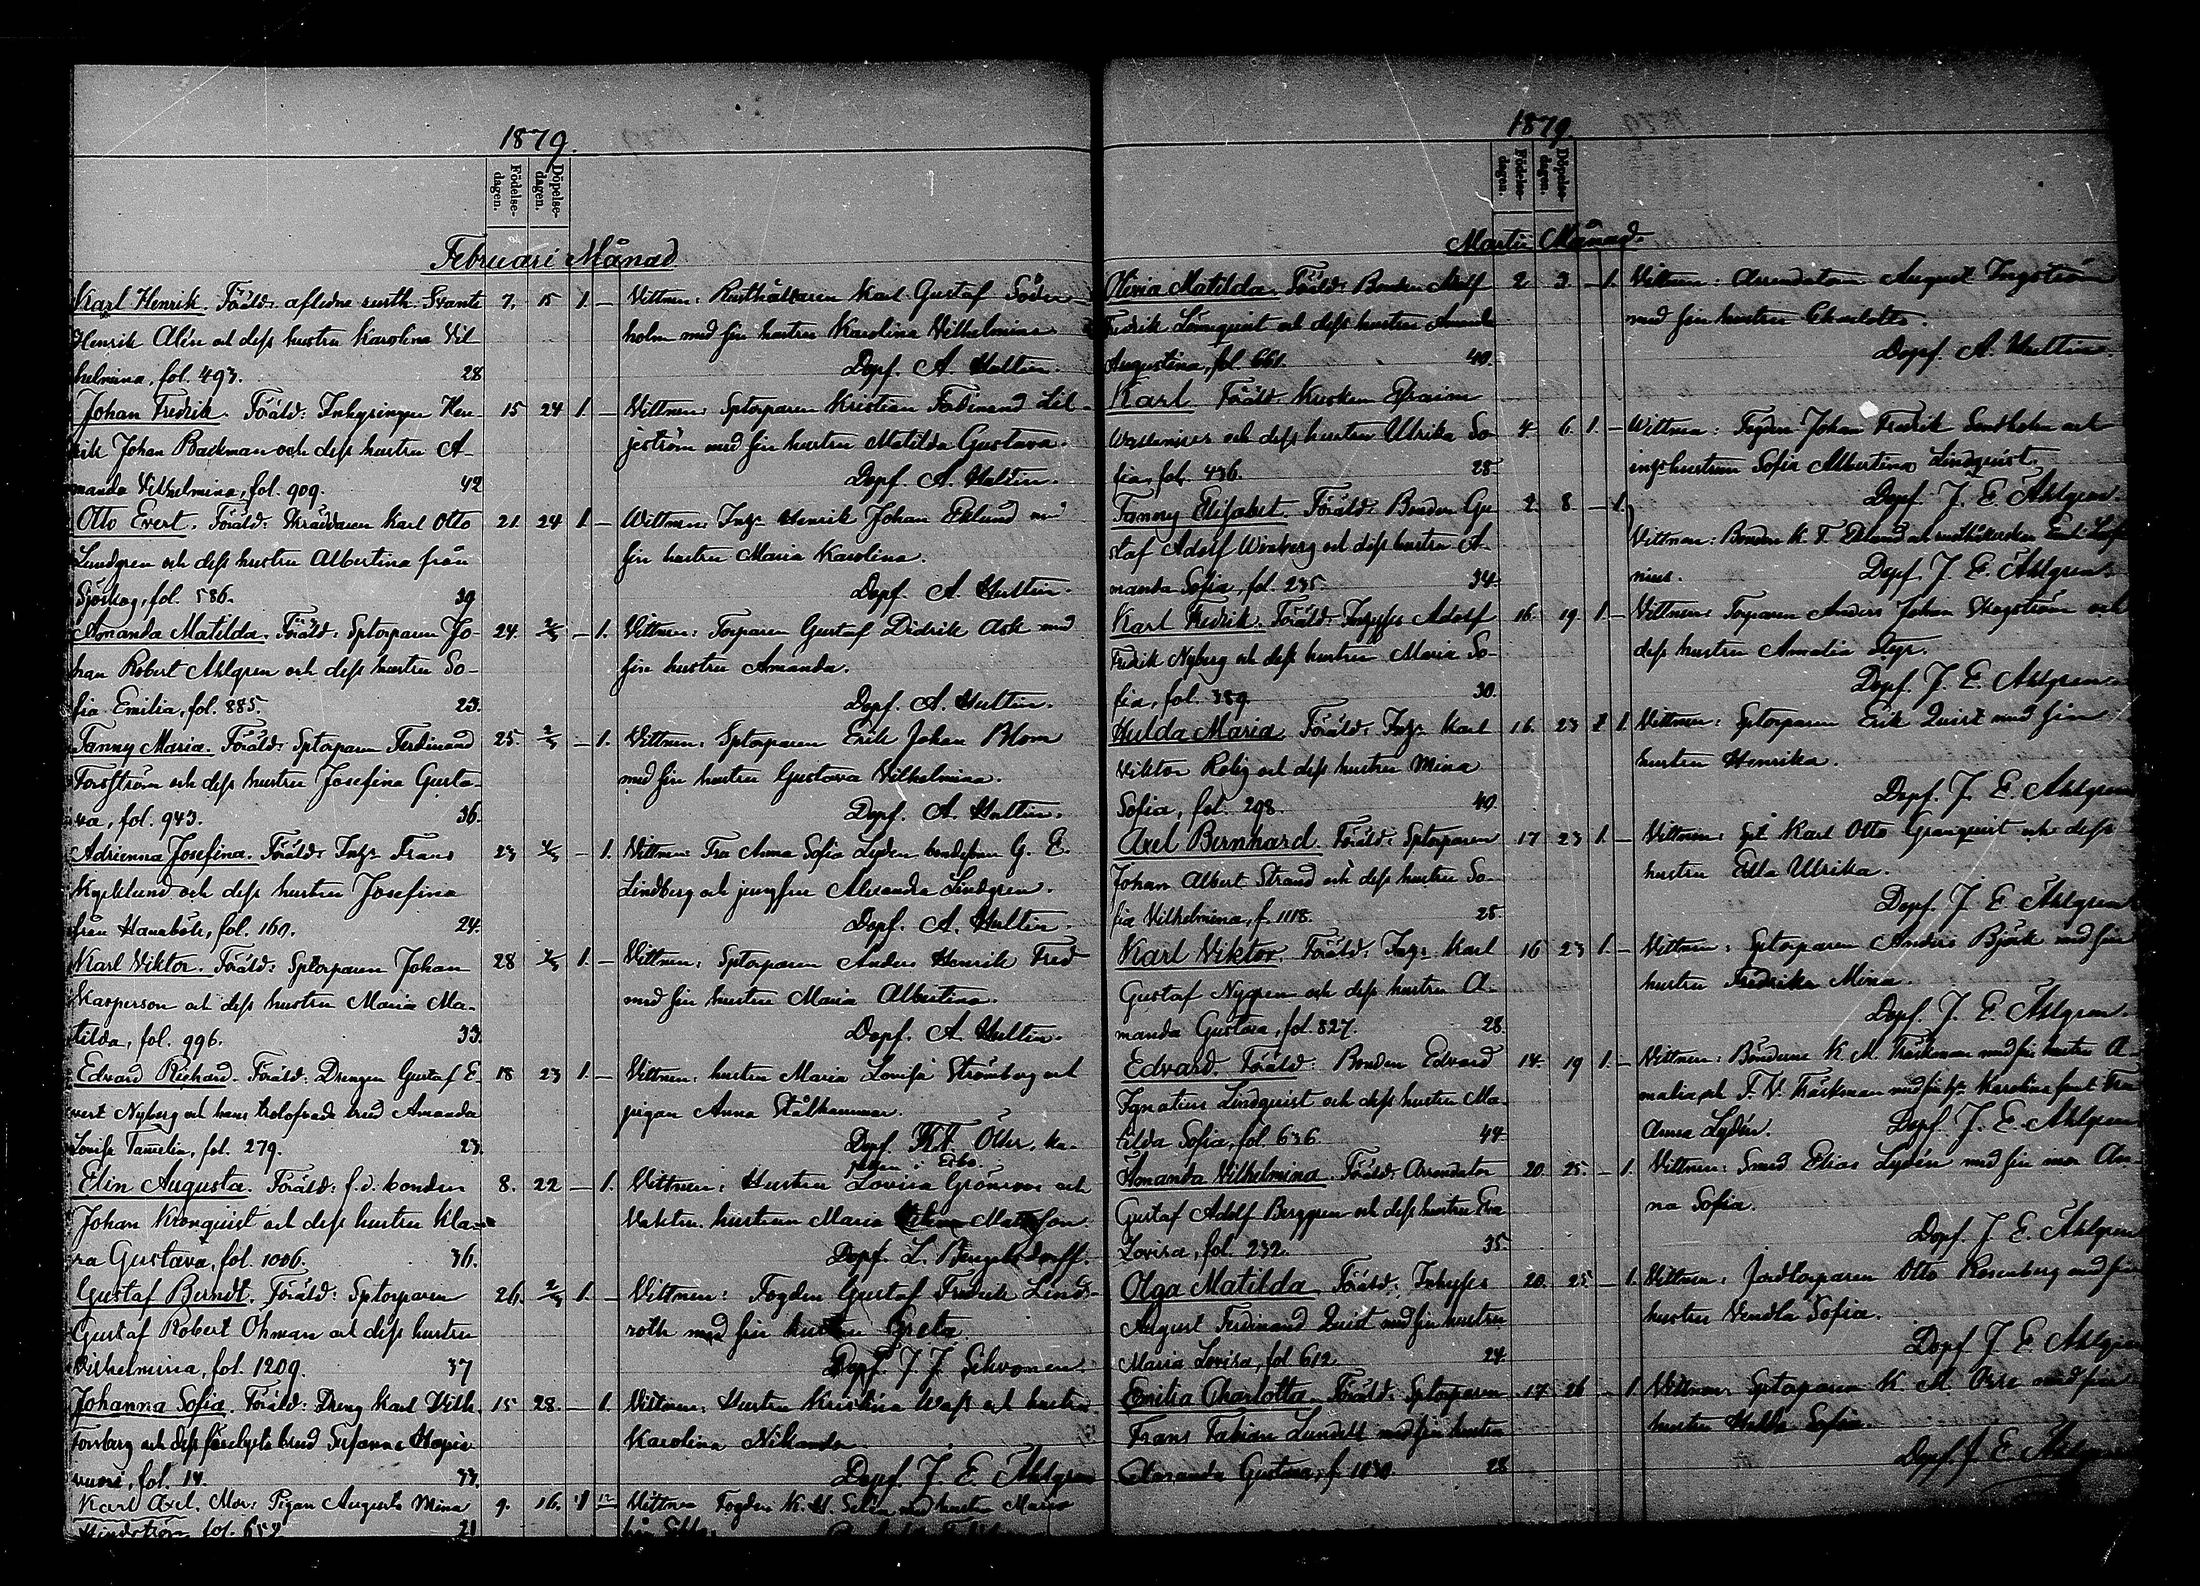 1879.
Födelse-dagen.
Döpelse-dagen.
Februari Månad
Karl Henrik. Föräld: aflidne rusth. Svante 7. 15 1. —
Henrik Alén och dess hustru Karolina Vil
helmina, fol. 493. 28
Vittnen: Rusthållaren Karl Gustaf Söder
holm med sin hustru Karolina Vilhelmina
Döpf. A. Hultin.
Johan Fredrik. Föräld: Inhysingen Hen- 15 24 1. —
rik Johan Backman och dess hustru A-
manda Vilhelmina, fol. 909. 42
Vittnen: Sptorparen Kristian Ferdinand Lil-
jeström med sin hustru Matilda Gustava.
Döpf. A. Hultin.
Otto Evert. Föräld: Skräddaren Karl Otto 21. 24 1. —
Lundgren och dess hustru Albertina från
fol. 586. 39
Wittnen: Inh. Henrik Johan Eklund med
sin hustru Maria Karolina.
Döpf. A. Hultin.
Amanda Matilda. Föräld: Sptorparen Jo- 24. 2/3 — 1.
han Robert Ahlgren och dess hustru So-
fia Emilia, fol. 885. 23.
Vittnen: Torparen Gustaf Didrik Ask med
sin hustru Amanda.
Döpf. A. Hultin.
Fanny Maria. Föräld: Sptorparen Ferdinand 25. 2/3 — 1.
Forsström och dess hustru Josefina Gusta-
va, fol. 943. 36.
Vittnen: Sptorparen Erik Johan Blom
med sin hustru Gustava Vilhelmina.
Döpf. A. Hultin.
Adrienna Josefina. Föräld: Inh: Frans 23 — 1.
och dess hustru Josefina
från fol. 160. 24.
Vittnen: Fru Anna Sofia Lydén bondesonen G. E.
Lindberg och jungfrun Alexandra Lindgren.
Döpf. A. Hultin.
Karl Viktor. Föräld: Sptorparen Johan 28 1. —
Kasperson och dess hustru Maria Ma-
tilda, fol. 996. 33.
Vittnen: Sptorparen Anders Henrik Fred
med sin hustru Maria Albertina.
Döpf. A. Hultin.
Edvard Richard. Föräld: Drengen Gustaf E- 18 23 1. —
vert Nyberg och hans trolofvade brud Amanda
Lovisa Tamelin, fol. 279. 23
Vittnen: hustru Maria Lovisa Strömberg och
pigan Anna Stålhammar.
Döpf. Ka-
pellan i
Elin Augusta. Föräld: f. d. bonden 8. 22 — 1.
Johan Kronquist och dess hustru Kla-
ra Gustava, fol. 1006. 36.
Vittnen: Hustru Lovisa Grönroos och
hustrun Maria Mattsson
Döpf. L. Bengelsdorff.
Gustaf Berndt. Föräld: Sptorparen 26. 2/3 1. —
Gustaf Robert Öhman och dess hustru
Vilhelmina, fol. 1209. 37
Vittnen: Fogden Gustaf Fredrik Lind-
roth med sin hustru Greta
Döpf. J. J.
Johanna Sofia. Föräld: Dreng Karl Vilh. 15 28. — 1.
Forsberg och dess brud Susanna
fol. 14. 33.
Vittnen: Hustru Kristina Wass och hustru
Karolina Nikander
Döpf. J. E. Ahlgren
Karl Axel. Mor: Pigan Augusta Mina 9. 16.
fol. 652 21
Vittnen Fogden K. H. med hustru Maria
1879.
Födelse-dagen.
Döpelse-dagen.
Martii Månad.
Olivia Matilda. Föräld: Bonden Adolf 2 3 — 1.
Fredrik Lönnquist och dess hustru Amanda
Augustina, fol. 661. 40.
Vittnen: Arrendatorn August Ingström
med sin hustru Charlotta.
Döpf. A. Hultin.
Karl Föräld: Kusken Efraim
Wallenius och dess hustru Ulrika So- 4. 6. 1. —
fia, fol. 436. 28
Wittnen: Fogden Johan Fredrik Lindholm och
Sofia Albertina Lindquist.
Döpf. J. E. Ahlgren.
Fanny Elisabet. Föräld: Bonden Gu- 2. 8. — 1.
staf Adolf Winberg och dess hustru A-
manda Sofia, fol. 235. 34.
Vittnen: Bonden K. F. Eklund och
nius. Döpf. J. E. Ahlgren.
Karl Fredrik. Föräld: Inhyses Adolf 16. 19. 1. —
Fredrik Nyberg och dess hustru Maria So-
fia, fol. 389. 30.
Vittnen: Torparen Anders Johan Skogström och
dess hustru Amalia
Döpf. J. E. Ahlgren
Hulda Maria. Föräld: Inh: Karl 16. 23 1.
Viktor Robig och dess hustru Mina
Sofia, fol. 298. 40.
Vittnen: Sptorparen Erik Quist med sin
hustru Henrika.
Döpf. J. E. Ahlgren
Axel Bernhard. Föräld: Sptorparen 17 23 1. —
Johan Albert Strand och dess hustru So-
fia Vilhelmina, f. 1118. 25.
Vittnen: Karl Otto Granquist och dess
hustru Edla Ulrika.
Döpf. J. E. Ahlgren
Karl Viktor. Föräld: Inh: Karl 16 23 1. —
Gustaf Nygren och dess hustru A-
manda Gustava, fol. 827. 28
Vittnen: Sptorparen Anders Björk med sin
hustru Fredrika Mina.
Döpf. J. E. Ahlgren.
Edvard. Föräld: Bonden Edvard 14. 19 1. —
Ignatius Lindquist och dess hustru Ma-
tilda Sofia, fol. 636. 44
Vittnen: Bönderne K. M. Träskman med sin hustru A-
malia och F. V. Träskman med sin Karolina samt Fru
Anna Lydén. Döpf. J. E. Ahlgren
Amanda Vilhelmina. Föräld: Arrendator 20. 25. — 1.
Gustaf Adolf Berggren och dess hustru Eva
Lovisa, fol. 232. 35.
Vittnen: Smed Elias Lydén med sin mor An-
na Sofia.
Döpf. J. E. Ahlgren
Olga Matilda Föräld: Inhyses 20. 25. — 1.
August Ferdinand Quist med sin hustru
Maria Lovisa, fol 612 24.
Vittnen: Jordtorparen Otto Rosenberg med sin
hustru Vendla Sofia.
Döpf. J. E. Ahlgren
Emilia Charlotta. Föräld: Sptorparen 17 26 — 1.
Frans Fabian Lundell med sin hustru
Amanda Gustava, f. 28
Vittnen: Sptorparen K. M. med sin
hustru Hulda Sofia.
Döpf. J. E. Ahlgren